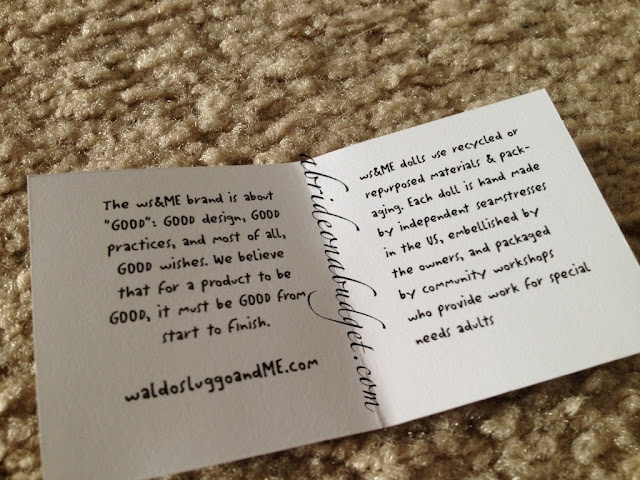 The ws&ME brand is about
"GOOD": GOOD design, GOOD
practices, and most of all,
GOOD wishes. We believe
that for a product to be
GOOD, it must be GOOD from
start to finish.
waldosluggoandME.com
abrideonabudget.com
ws&ME dolls use recycled or
repurposed materials & pack-
aging. Each doll is hand made
by independent seamstresses
in the US, embellished by
the owners, and packaged
by community workshops
who provide work for special
needs adults